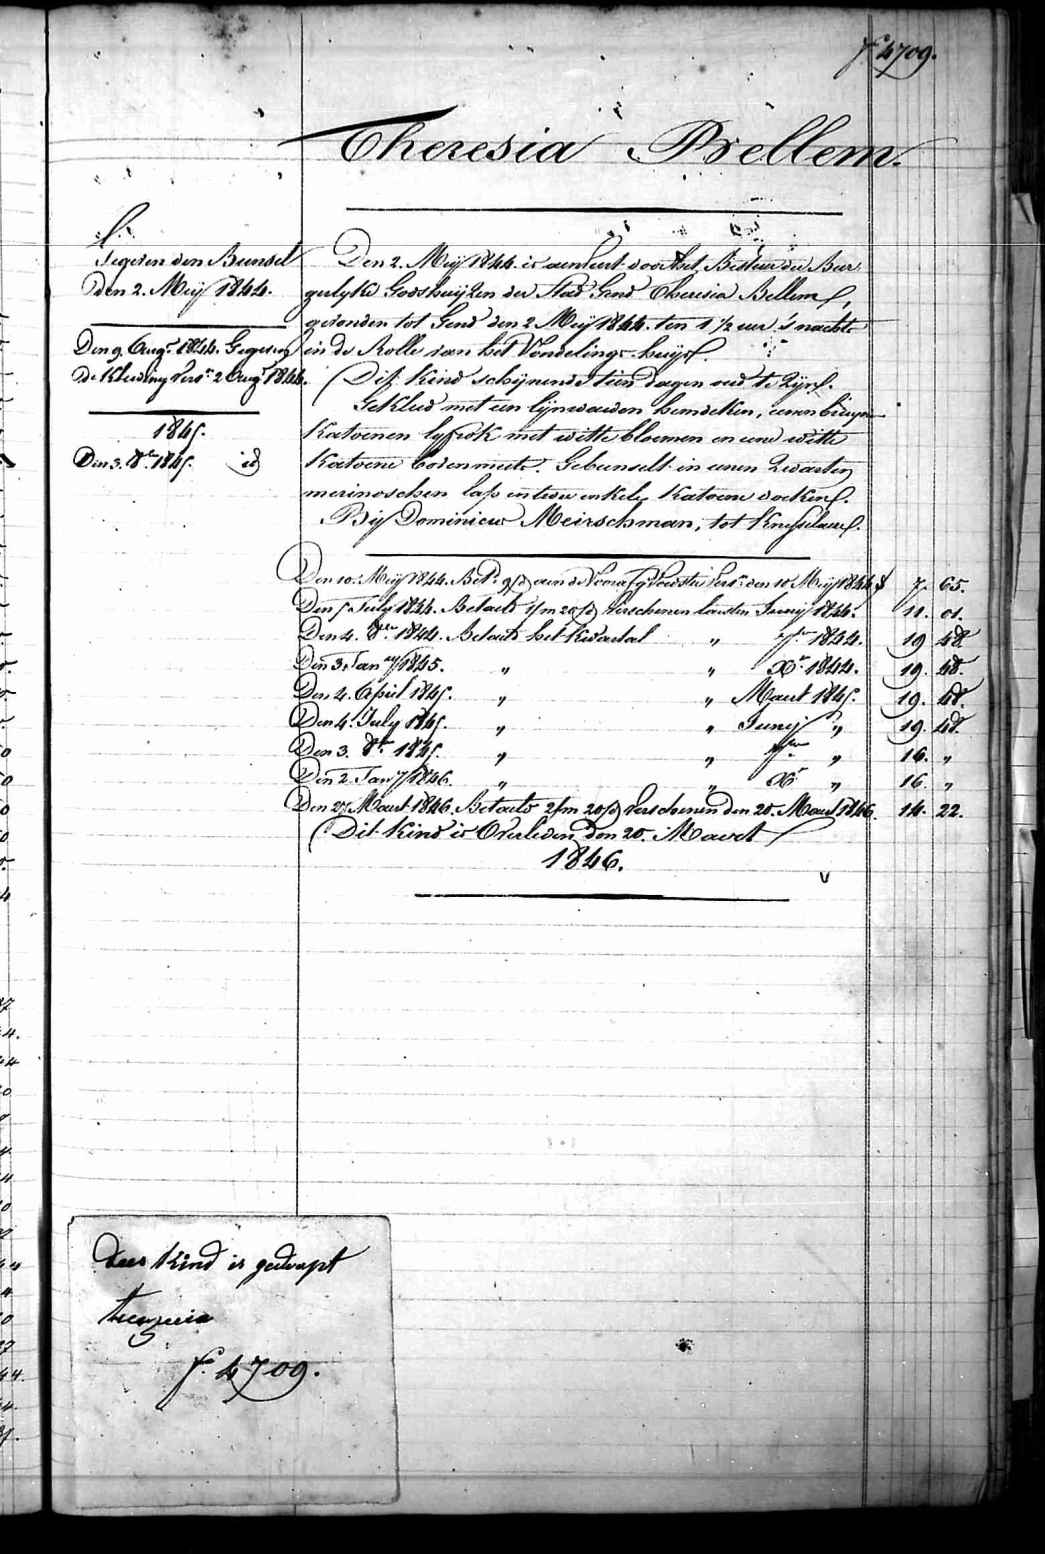 f° 4709.
Theresia Bellem.
Gegeven den Bunsel
den 2. Meij 1844.
Den 9. Augt. 1844. Gegeven
de Kleeding vers. 2 Augt 1844.
1845.
Den 3. 8bre 1845. id
Den 2. Meij 1844. is aenveert door het Bestuer der Bur
gerlyke Godshuijzen der Stad Gend Theresia Bellem,
gevonden tot Gend den 2 Meij 1844. ten 1 1/2 uer 's nachts
in de Rolle van het Vondelings-huijs.
Dit Kind schijnende tien dagen oud te Zijn.
Gekleed met een lijnwaden hemdeken, eenen bruyn
Katoenen lyfrok met witte bloemen en eene witte
Katoene bovenmuts. Gebunselt in eenen Zwarten
merinoschen lap en twee enkele Katoene doeken.
Bij Dominicus Meirschman, tot Knesselaere.
Den 10. Meij 1844. Bet. aen de Voorafg Voedster vers. den 10 Meij 1844 7. 65.
Den 5. July 1844. Betaelt 1/m 20/d verschenen lasten Junij 1844. 11. 01.
Den 4. 8bre 1844. Betaelt het Kwartal " 7bre 1844. 19 48.
Den 3. Jany 1845. " " Xr. 1844. 19. 48.
Den 4. April 1845. " " Maert 1845. 19. 48.
Den 4. July 1845. " " Junij " 19. 48.
Den 3. 8br. 1845. " " 7bre " 16. "
Den 2. Jany 1846. " " Xr " 16. "
Den 27 Maert 1846. Betaelt 2/m 20/d verschenen den 20. Maert 1846. 14. 22.
Dit Kind is Overleden den 20. Maert
1846.
v
dees Kind is gedoopt
f° 4709.